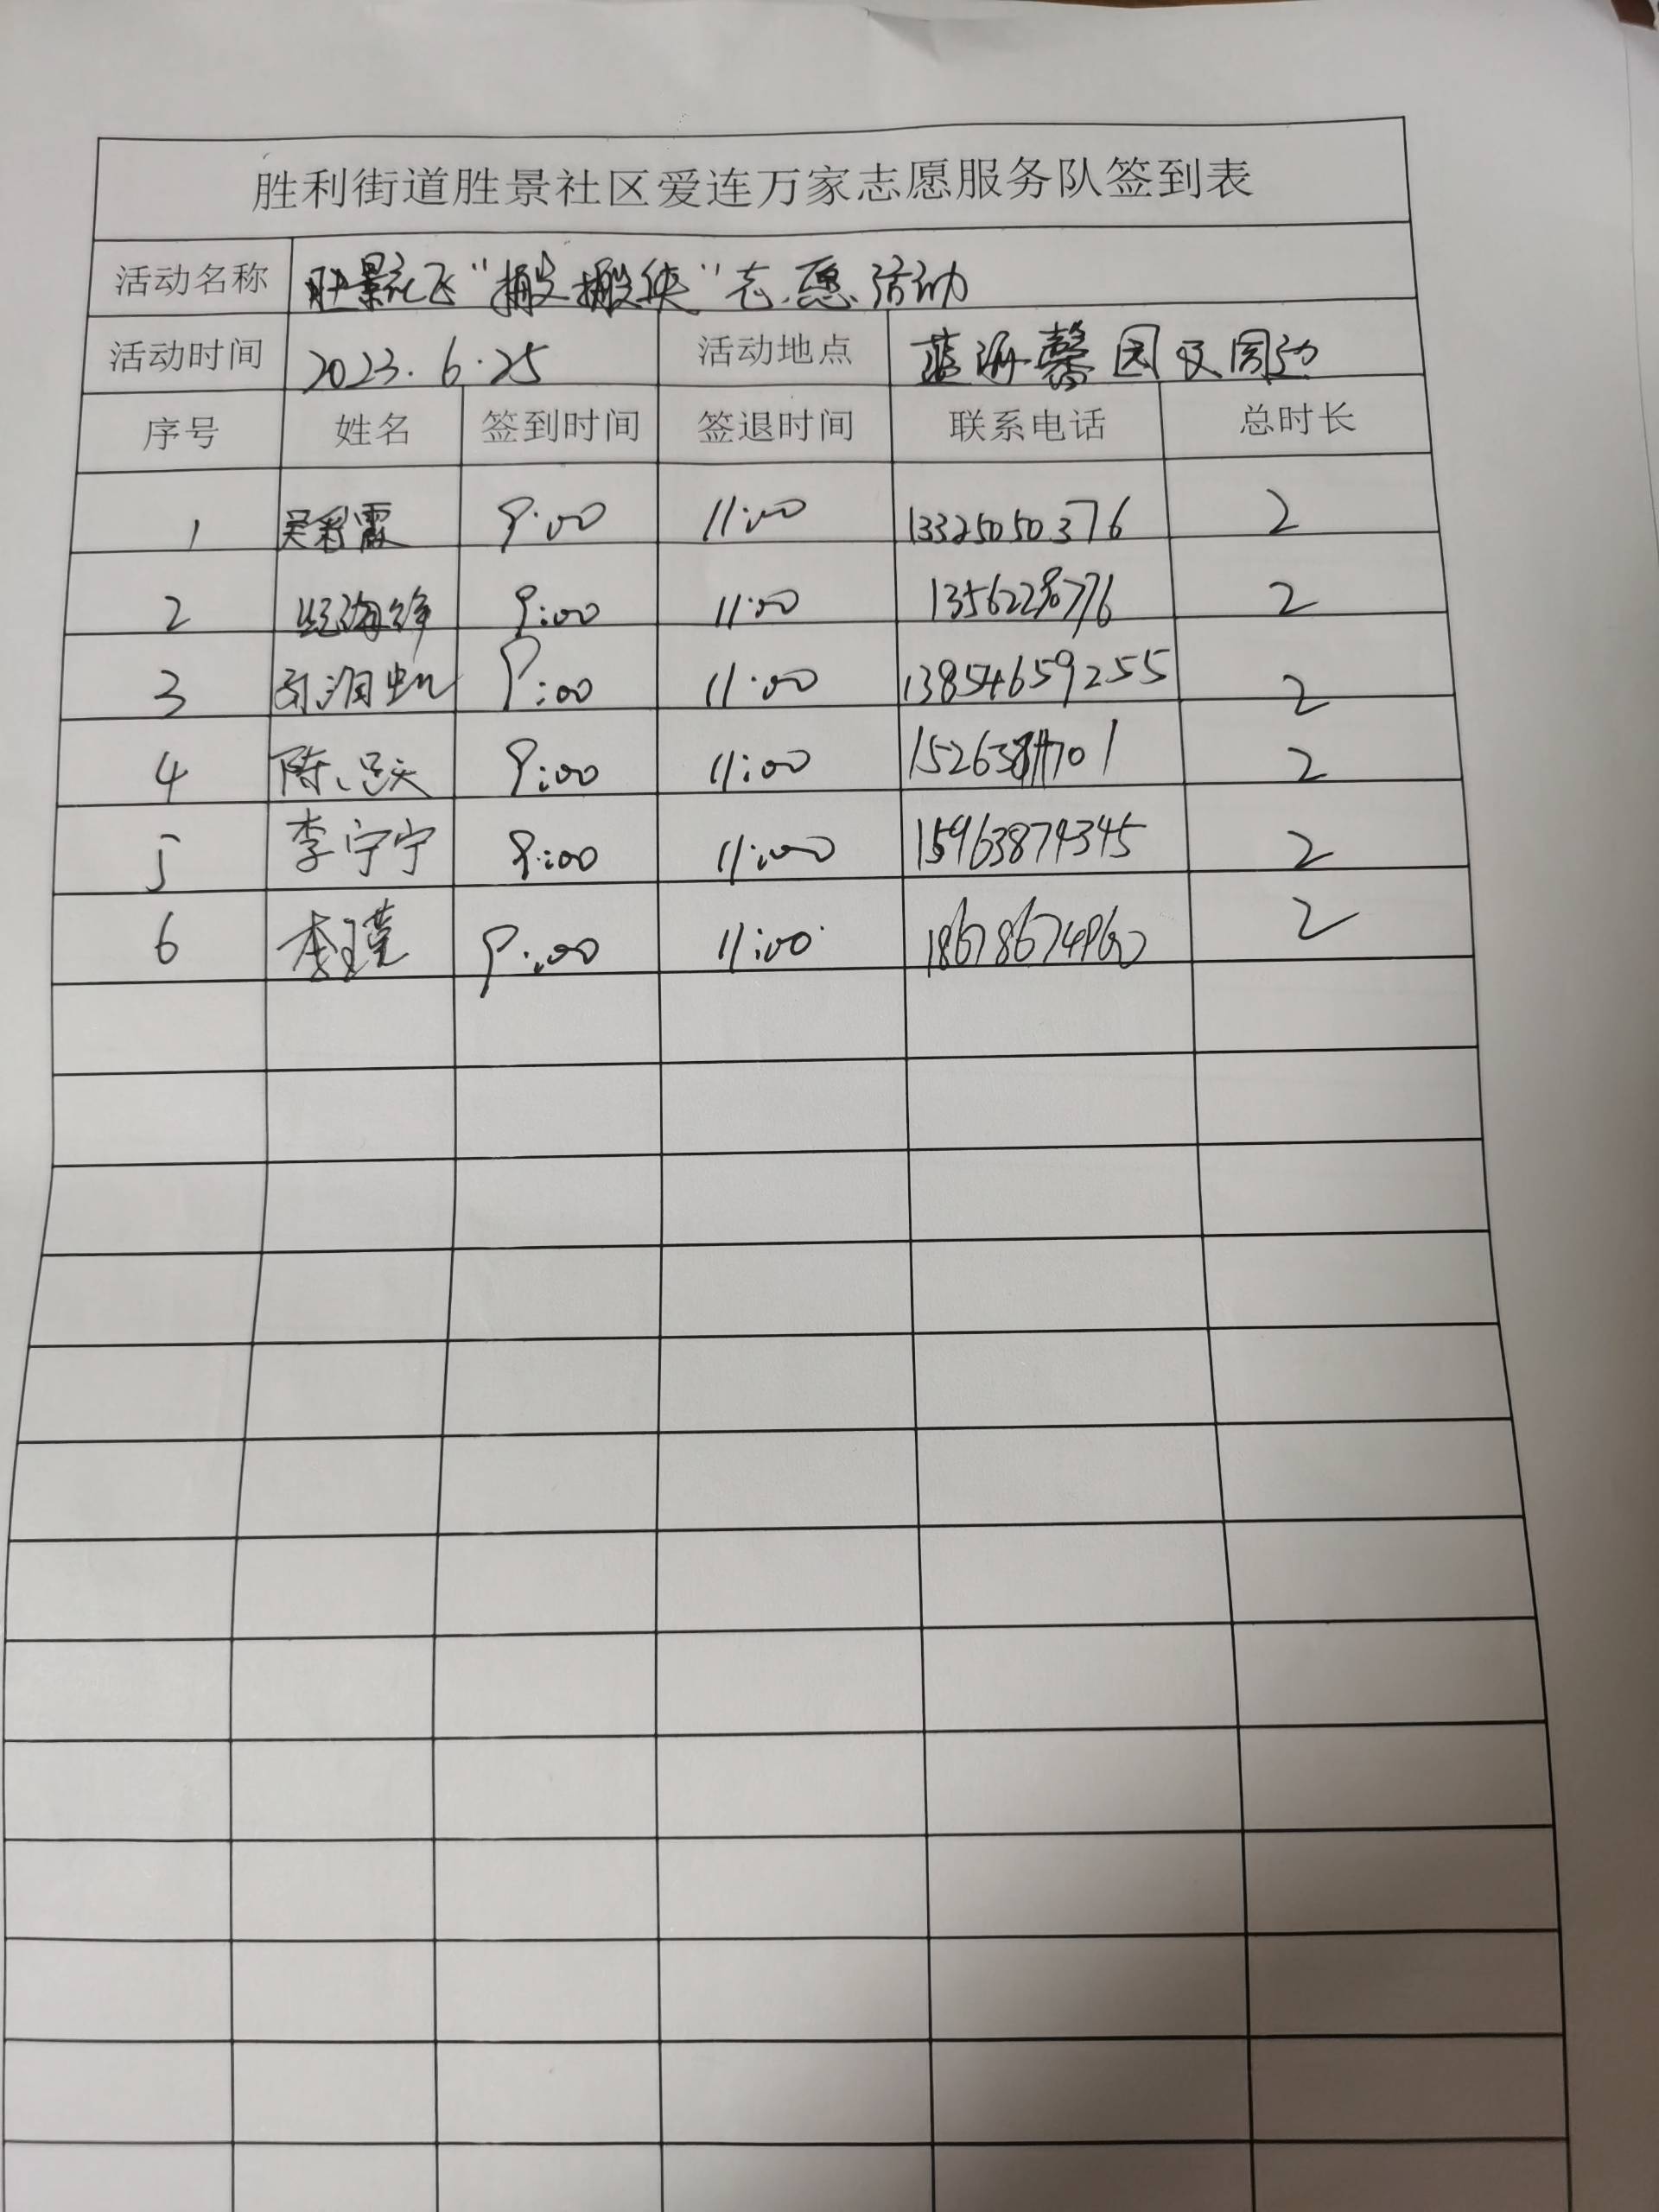 胜利街道胜景社区爱连万家志愿服务队签到表
活动名称 胜景 飞“搬搬侠”志愿活动
活动时间 2023.6.25 活动地点 蓝海馨园及周边
序号 姓名 签到时间 签退时间 联系电话 总时长
1 吴彩霞 9:00 11:00 13325050376 2
2 9:00 11:00 2
3 9:00 11:00 13854659255 2
4 陈 9:00 11:00 2
5 李宁宁 9:00 11:00 15963874345 2
6 李瑾 9:00 11:00 2